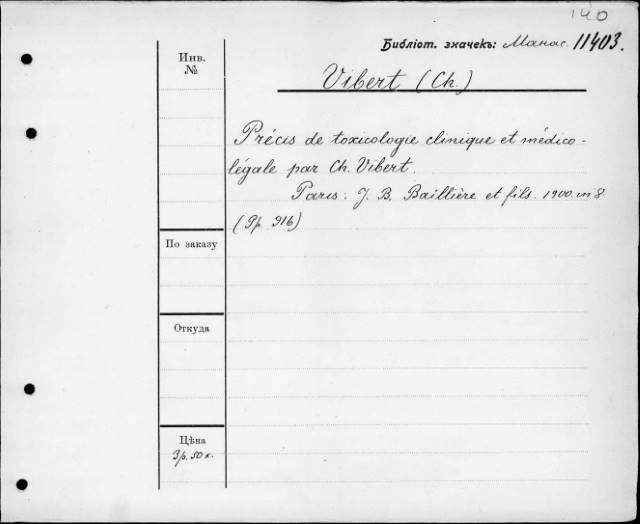 140
Библіот. значекъ: Манас. 11403.
Инв.
№
Vibert (Ch.)
Précis de toxicologie clinique et médico-
légale par Ch. Vibert.
Paris: J. B. Baillière et fils. 1900. in 8
(Pp. 916)
По заказу
Откуда
Цѣна
3р. 50 к.